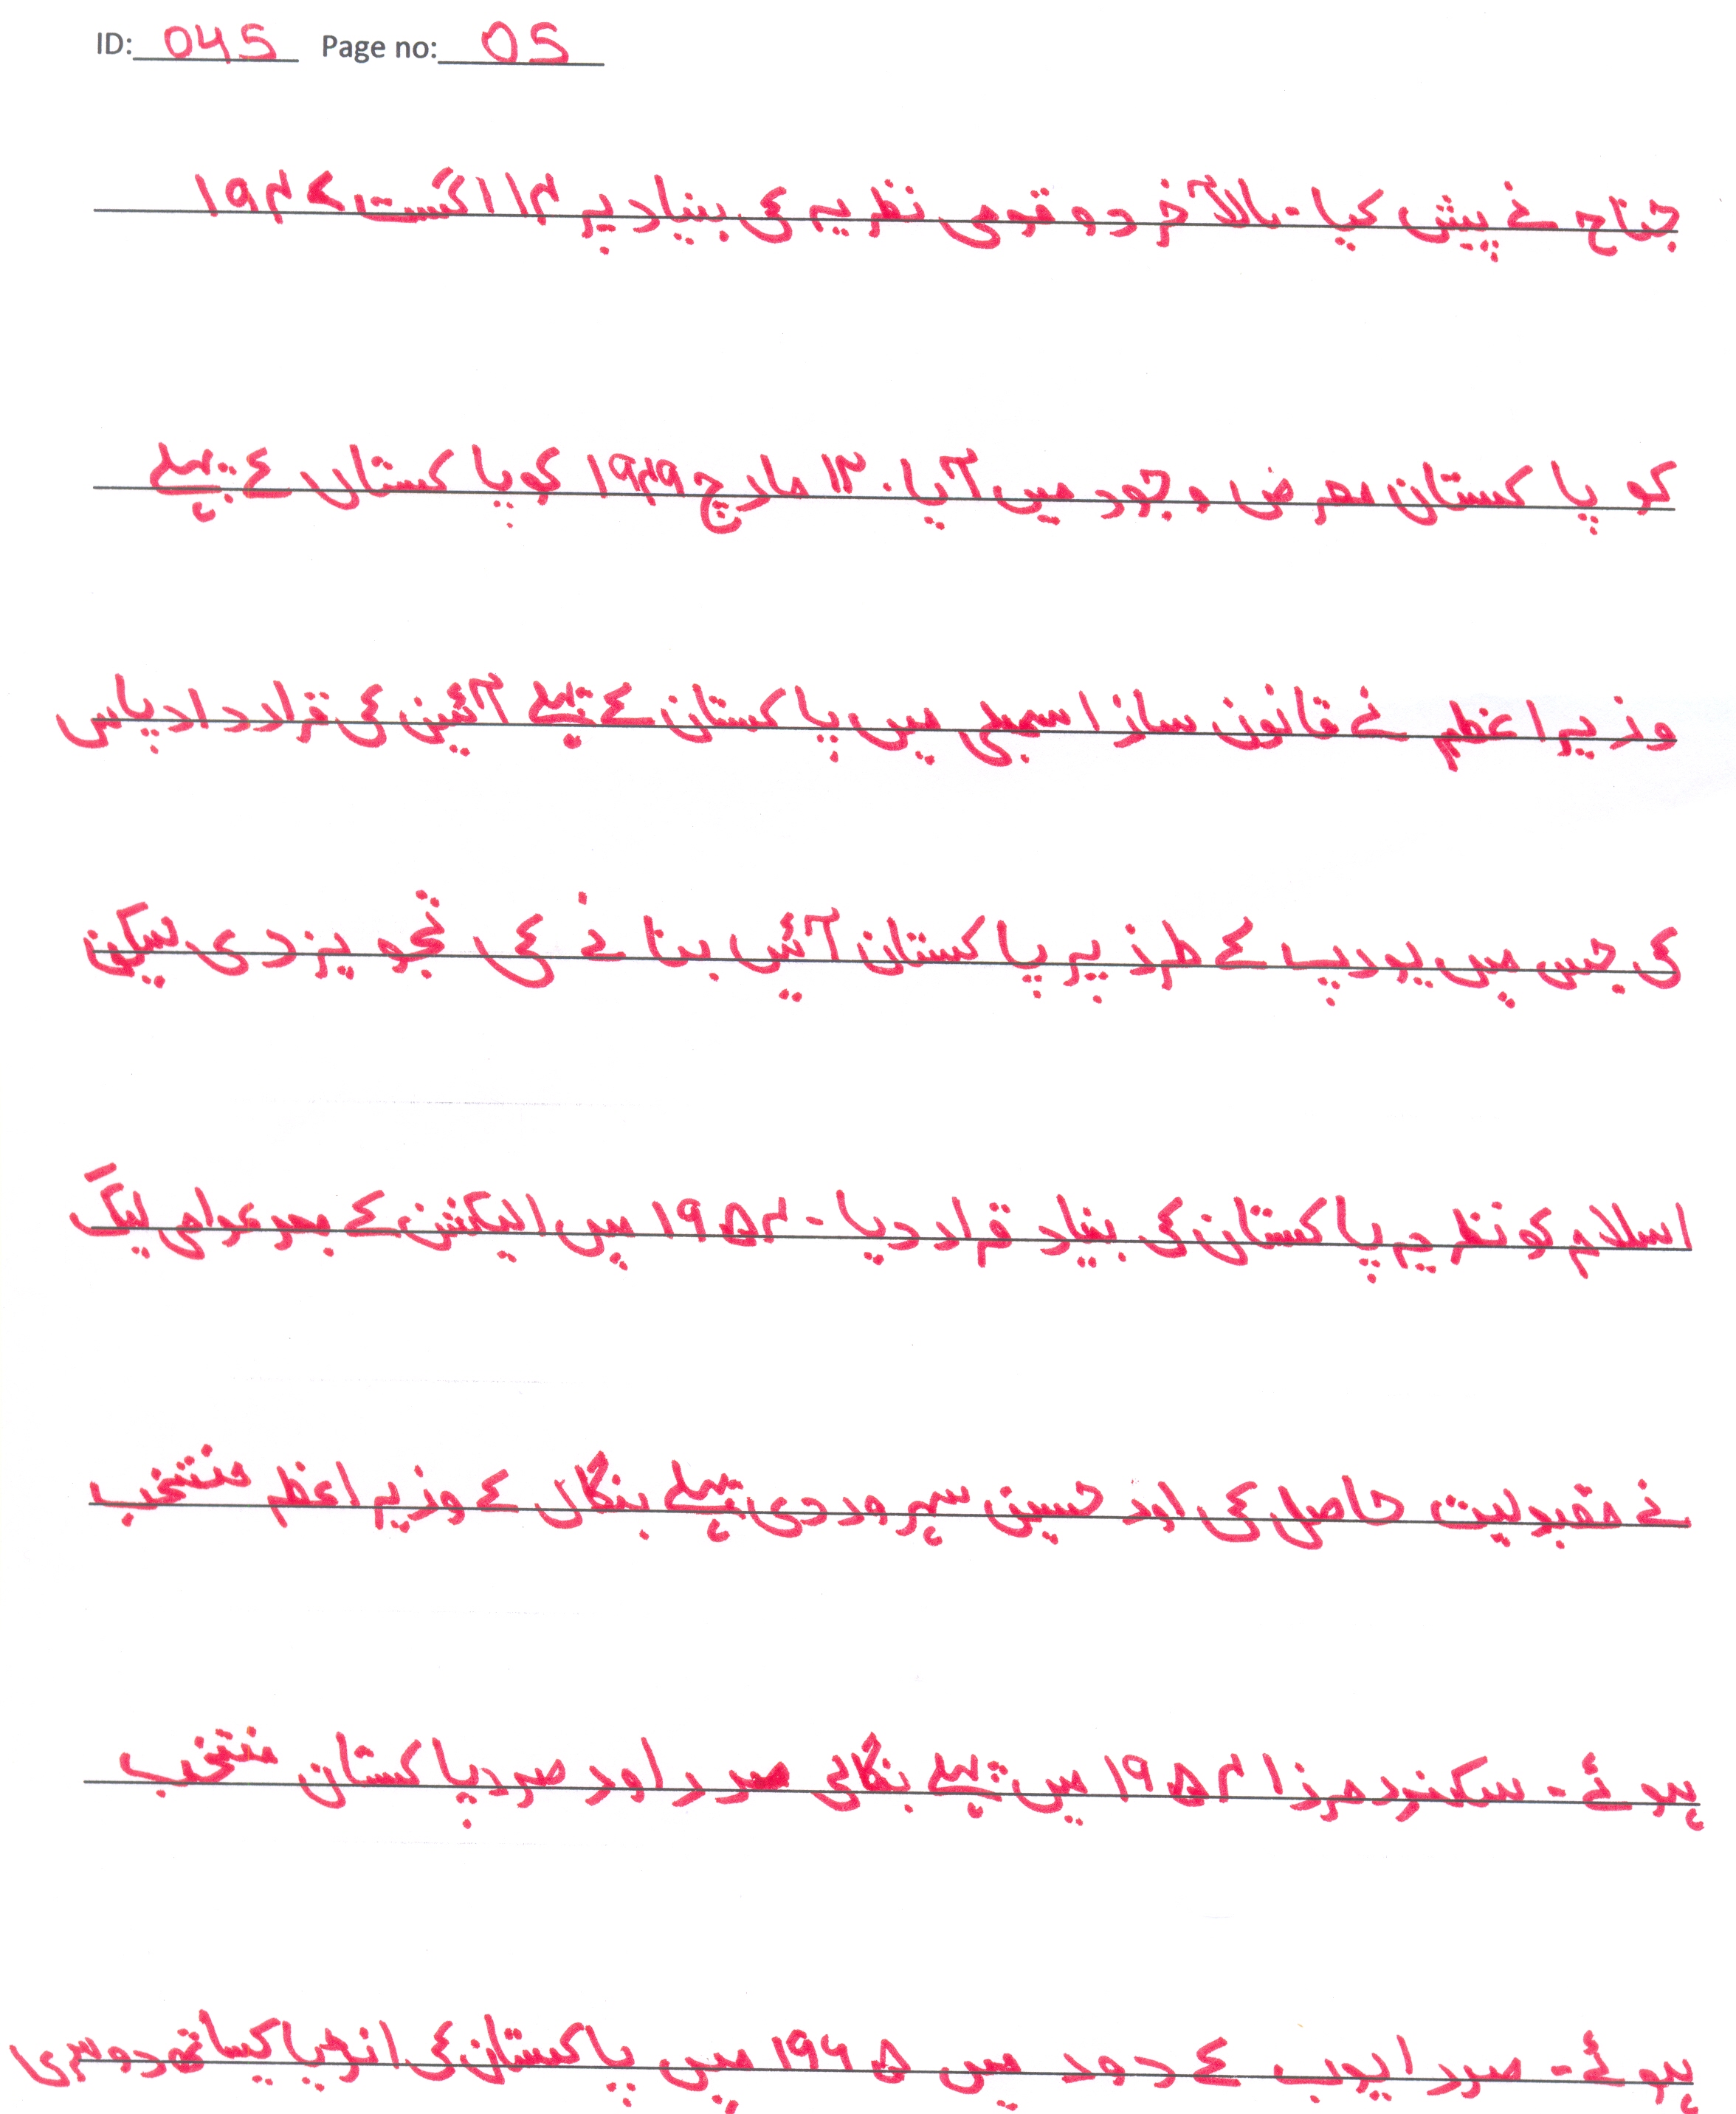 ID: 045 Page no: 05
جناح نے پیش کیا - بالآخر دو قومی نظریہ کی بنیاد پر ۱۴ اگست ۱۹۴۷
کو پاکستان معرض وجود میں آیا۔ ۱۲ مارچ ۱۹۴۹ کو پاکستان کے پہلے
وزیراعظم نے قانون ساز اسمبلی میں پاکستان کے پہلے آئین کی قرارداد پاس
کی جس میں یورپ کے طرز پر پاکستان آئین بنانے کی تجویز دی لیکن
اسلام کو نظریہ پاکستان کی بنیاد قرار دیا - ۱۹۵۴ میں الیکشن کے بعد عوامی لیگ
نے مقبولیت حاصل کی اور حسین سہروردی پہلے بنگال کے وزیراعظم منتخب
ہوئے - سکندر مرزا ۱۹۵۴ میں پہلے بنگالی صدر اور صدر پاکستان منتخب
ہوئے - صدر ایوب کے دور میں ۱۹۶۵ میں پاکستان کی انڈیا کیساتھ دوسری